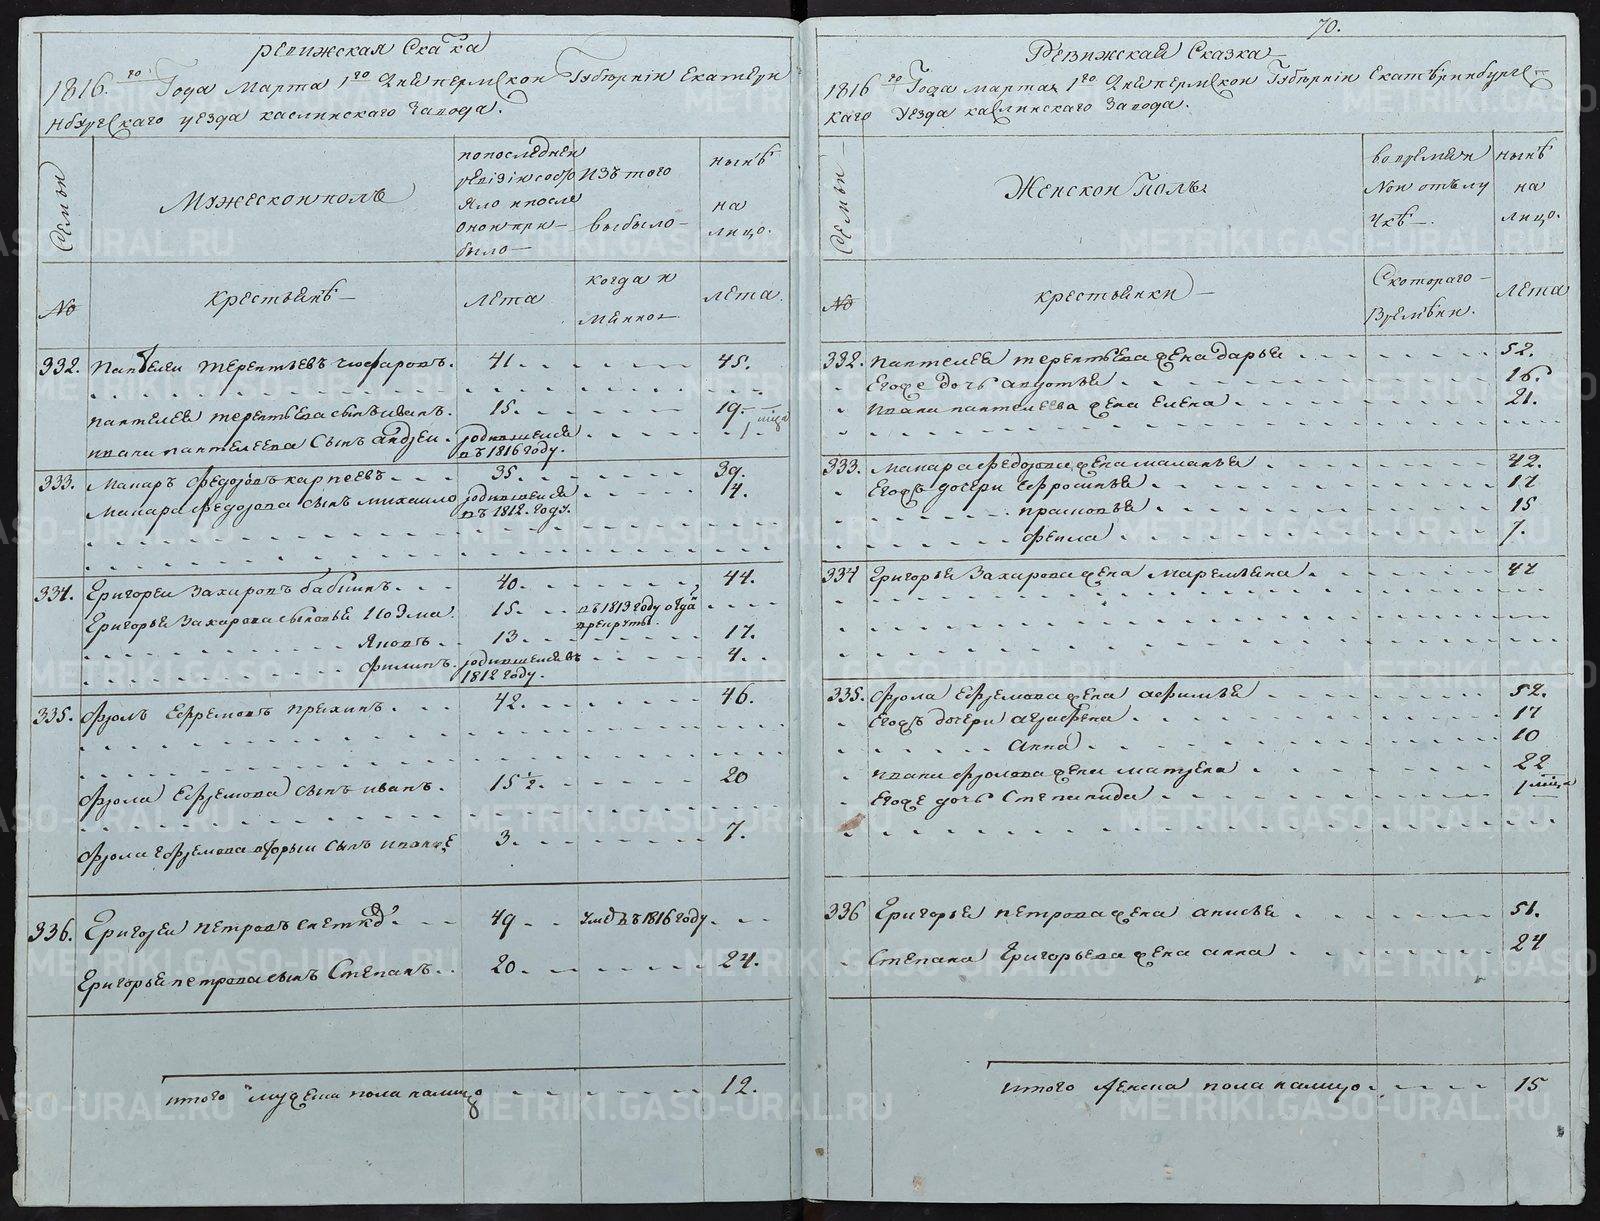 70.
Ревижская Сказка
1816.го Года Марта 1го Дня пермской Губернiи Екатерин
нбургскаго уезда каслинскаго Завода.
Семьи
Мужеской полъ
попоследней
ревiзiи состо
яло ипосле
оной при
было
Изъ того
выбыло
ныне
на
лицо.
№
крестьянъ
лета
когда и
лета.
332. Пантелей терентьевъ 41 45.
пантелея терентьева сынъ иванъ. 15. 19.
ивана пантелеева Сынъ андрей. родившейся
въ 1816 году. 1 мца
333. Макаръ федоровъ карпеевъ 35 39.
Макара федорова сынъ михаило родившейся
въ 1812. году. 4.
334. Григорей Захаровъ бабкинъ. 40. 44.
Григорья Захарова сыновья 15. въ 1813 году отда
Яковъ 13 17.
филипъ. родившейся въ
1812 году. 4.
335. Фролъ Ефремовъ 42. 46.
фрола Ефремова сынъ иванъ. 15 1/2. 20
фрола ефремова вторый сынъ иванъ 3. 7.
336. Григорей петровъ 49 умре въ 1816 году.
Григорья петрова сынъ Степанъ. 20. 24.
итого мужеска пола налицо 12.
Ревижская Сказка
1816го Года марта 1го Дня пермской Губернiи Екатеринбургс
каго Уезда каслинскаго Завода.
Семьи
Женской Полъ
во времен
ной отлу
чке
ныне
на
лицо.
№
крестьянки
Скотораго
Времени.
лета
332. Пантелея терентьева жена дарья 52.
Егоже дочь авдотья 16.
ивана пантелеева жена Елена 21.
333. Макара федорова жена маланья 42.
Егожъ дочери Ефросинья 17
прасковья 15
фекла 7.
334 Григорья Захарова жена Маремьяна. 44
335. Фрола Ефремова жена афимья 52.
Егожъ дочери аграфена 17
Анна 10
ивана фролова жена матрена 22
Егоже дочь Степанида 1 мца
336 Григорья петрова жена анисья 51.
Степана Григорьева жена анна 24
итого женска пола налицо 15
METRIKI.GASO-URAL.RU